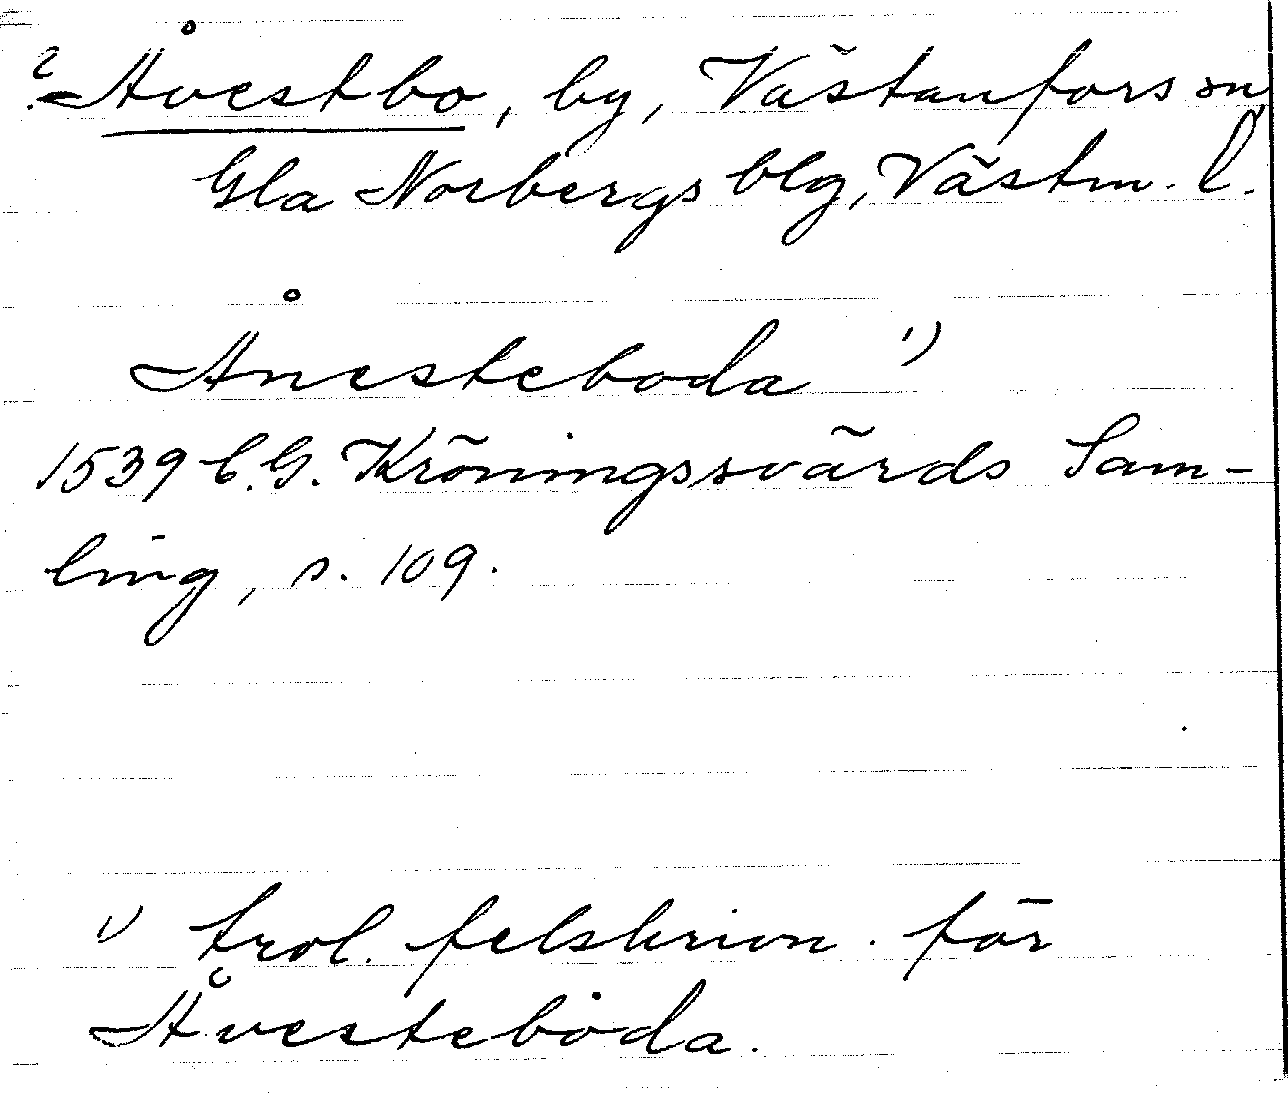 ? Åvestbo, by, Västanfors sn,
Gla Norbergs blg, Västm. l.
Ånesteboda 1)
1539 C.G. Kröningssvärds Sam-
ling, s. 109.
1) trol. felskrivn. för
Åvesteboda.